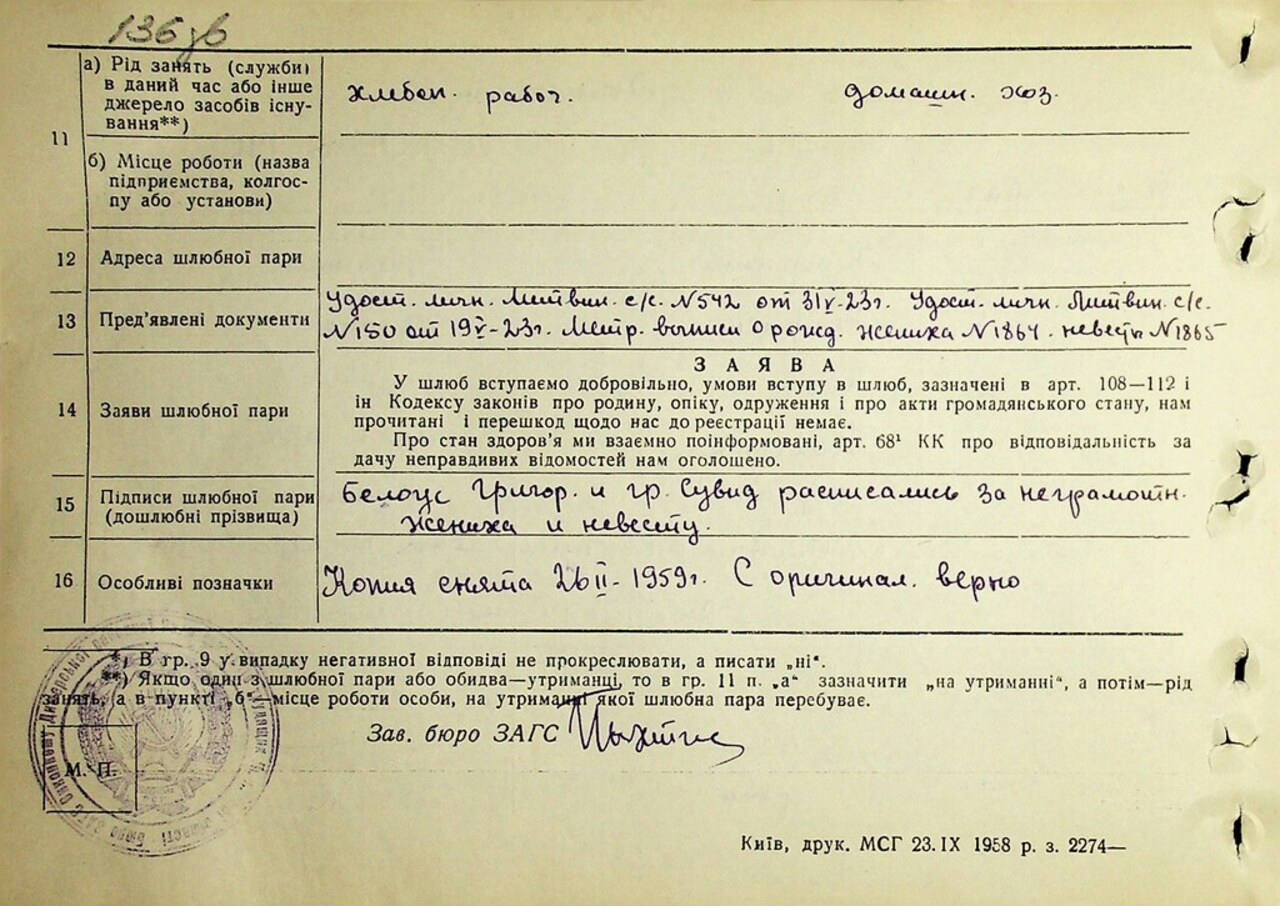 136 зв
11
а) Рід занять (служби)
в даний час або інше
джерело засобів існу-
вання**)
хлебоп. работ.
домашн. хоз.
б) Місце роботи (назва
підприємства, колгос-
пу або установи)
12
Адреса шлюбної пари
13
Пред’явлені документи
Удост. личн. Литвин. с/с. N542 от 31V-23г. Удост. личн. Литвин. с/с.
N150 от 19V-23г. Метр. выписи о рожд. жениха N1864. невесты N1865
14
Заяви шлюбної пари
ЗАЯВА
У шлюб вступаємо добровільно, умови вступу в шлюб, зазначені в арт. 108—112 і
ін Кодексу законів про родину, опіку, одруження і про акти громадянського стану, нам
прочитані і перешкод щодо нас до реєстрації немає.
Про стан здоров’я ми взаємно поінформовані, арт. 68¹ КК про відповідальність за
дачу неправдивих відомостей нам оголошено.
15
Підписи шлюбної пари
(дошлюбні прізвища)
Белоус Григор. и гр. Сувид расписались за неграмотн.
жениха и невесту.
16
Особливі позначки
Копия снята 26II-1959г. С оригинал. верно
*) В гр. 9 у випадку негативної відповіді не прокреслювати, а писати „ні“.
**) Якщо один з шлюбної пари або обидва—утриманці, то в гр. 11 п. „а“ зазначити „на утриманні“, а потім—рід
занять, а в пункті „б“—місце роботи особи, на утриманні якої шлюбна пара перебуває.
Зав. бюро ЗАГС
М. П.
Київ, друк. МСГ 23.IX 1958 р. з. 2274—